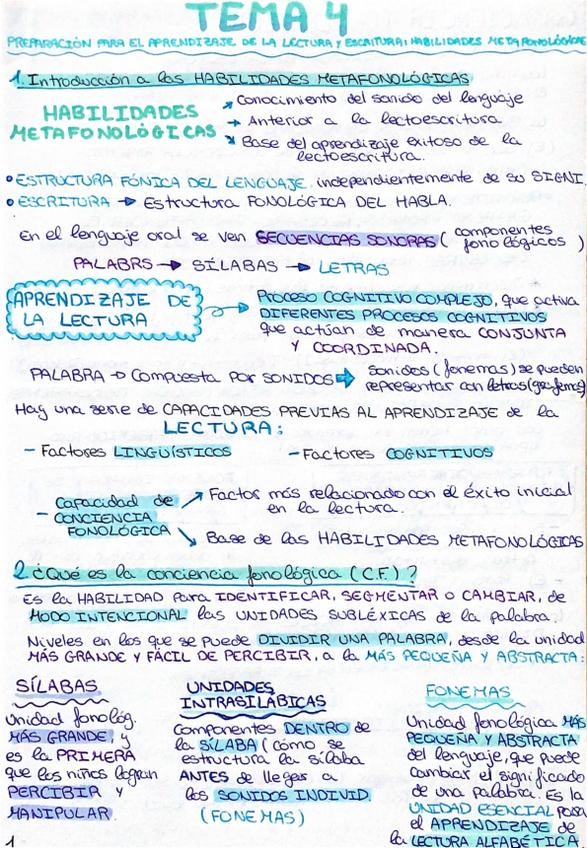 TEMA 4
PREPARACIÓN PARA EL APRENDIZAJE DE LA LECTURA Y ESCRITURA: HABILIDADES METAFONOLÓGICAS
1. Introducción a las HABILIDADES METAFONOLÓGICAS
HABILIDADES METAFONOLÓGICAS
→ Conocimiento del sonido del lenguaje
→ Anterior a la lectoescritura
→ Base del aprendizaje exitoso de la
lectoescritura.
• ESTRUCTURA FÓNICA DEL LENGUAJE, independientemente de su SIGNI.
• ESCRITURA → Estructura FONOLÓGICA DEL HABLA.
En el lenguaje oral se ven SECUENCIAS SONORAS (componentes
fonológicos)
PALABRS → SÍLABAS → LETRAS
APRENDIZAJE DE
LA LECTURA
→ PROCESO COGNITIVO COMPLEJO, que activa
DIFERENTES PROCESOS COGNITIVOS
que actúan de manera CONJUNTA
Y COORDINADA.
PALABRA → Compuesta por SONIDOS → Sonidos (fonemas) se pueden
representar con letras (grafemas)
Hay una serie de CAPACIDADES PREVIAS AL APRENDIZAJE de la
LECTURA:
- Factores LINGUÍSTICOS - Factores COGNITIVOS
- Capacidad de
CONCIENCIA
FONOLÓGICA
→ Factor más relacionado con el éxito inicial
en la lectura.
→ Base de las HABILIDADES METAFONOLÓGICAS
2. ¿Qué es la conciencia fonológica (C.F.)?
Es la HABILIDAD para IDENTIFICAR, SEGMENTAR O CAMBIAR, de
MODO INTENCIONAL las UNIDADES SUBLÉXICAS de la palabra.
Niveles en los que se puede DIVIDIR UNA PALABRA, desde la unidad
MÁS GRANDE Y FÁCIL DE PERCIBIR, a la MÁS PEQUEÑA Y ABSTRACTA:
SÍLABAS
Unidad fonológ.
MÁS GRANDE, y
es la PRIMERA
que los niños logran
PERCIBIR Y
MANIPULAR.
UNIDADES
INTRASILÁBICAS
Componentes DENTRO de
la SÍLABA (cómo se
estructura la sílaba
ANTES de llegar a
los SONIDOS INDIVID.
(FONEMAS)
FONEMAS
Unidad fonológica MÁS
PEQUEÑA Y ABSTRACTA
del lenguaje, que puede
cambiar el significado
de una palabra. Es la
UNIDAD ESENCIAL para
el APRENDIZAJE de
la LECTURA ALFABÉTICA
1